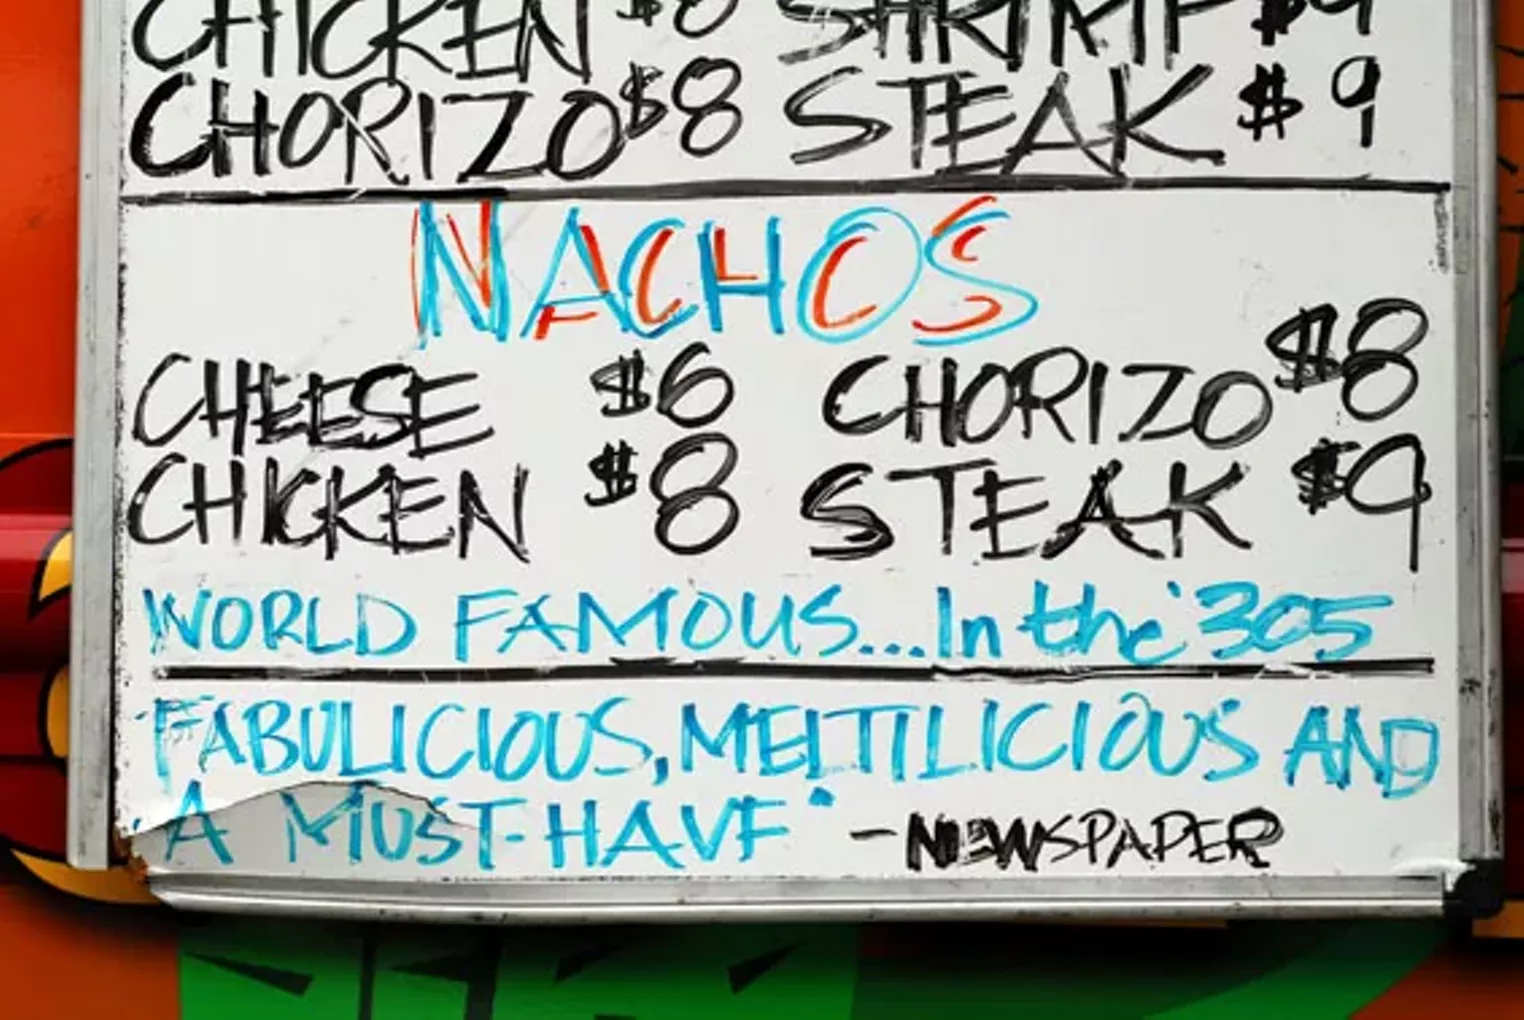 CHICKEN $8 SHRIMP $9
CHORIZO $8 STEAK $9
NACHOS
CHEESE $6 CHORIZO $8
CHICKEN $8 STEAK $9
WORLD FAMOUS...In the '305
"FABULICIOUS, MELTILICIOUS AND
A MUST-HAVE" -NEWSPAPER